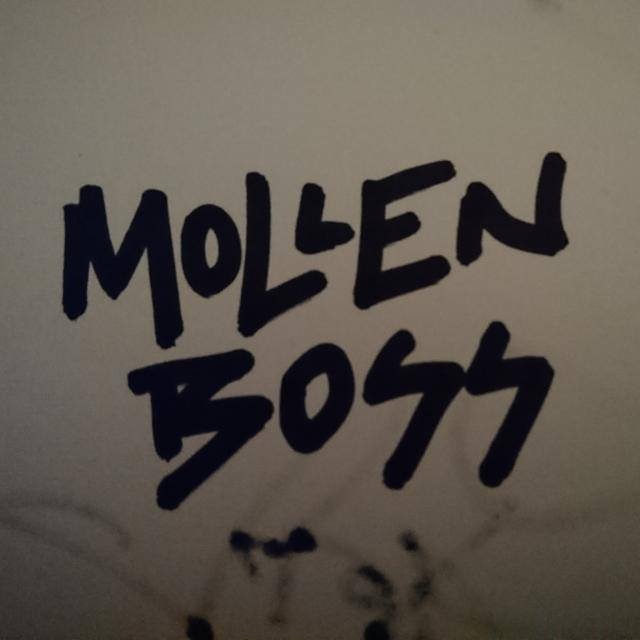 MOLLEN
BOSS